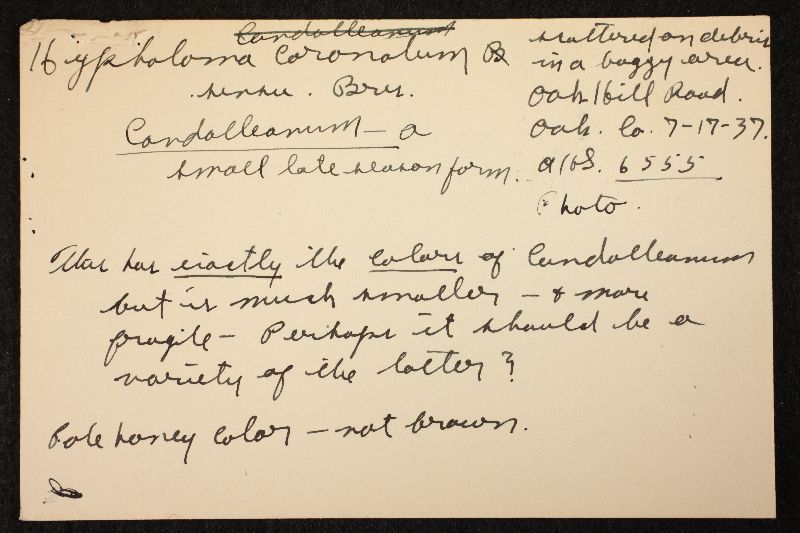 Candolleanum
Hypholoma coronatum
sensu. Bres.
Candolleanum – a
small late season form.
scattered on debris
in a boggy area.
Oak Hill Road.
Oak. Co. 7-17-37.
AHS. 6555
Photo.
This has exactly the colors of Candolleanum
but is much smaller – & more
fragile – Perhaps it should be a
variety of the latter?
Pale honey color – not brown.